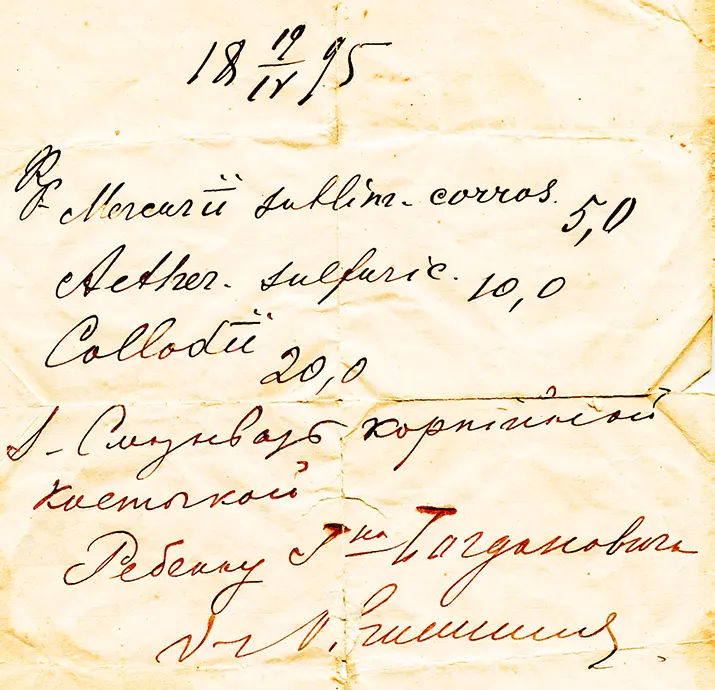 18 19/IV 95
Rp. Mercurii sublim. corros. 5,0
Aether. sulfuric. 10,0
Collodii 20,0
S- Смазывать корпійной
кисточкой
Ребенку Г-на Богдановича
D-r